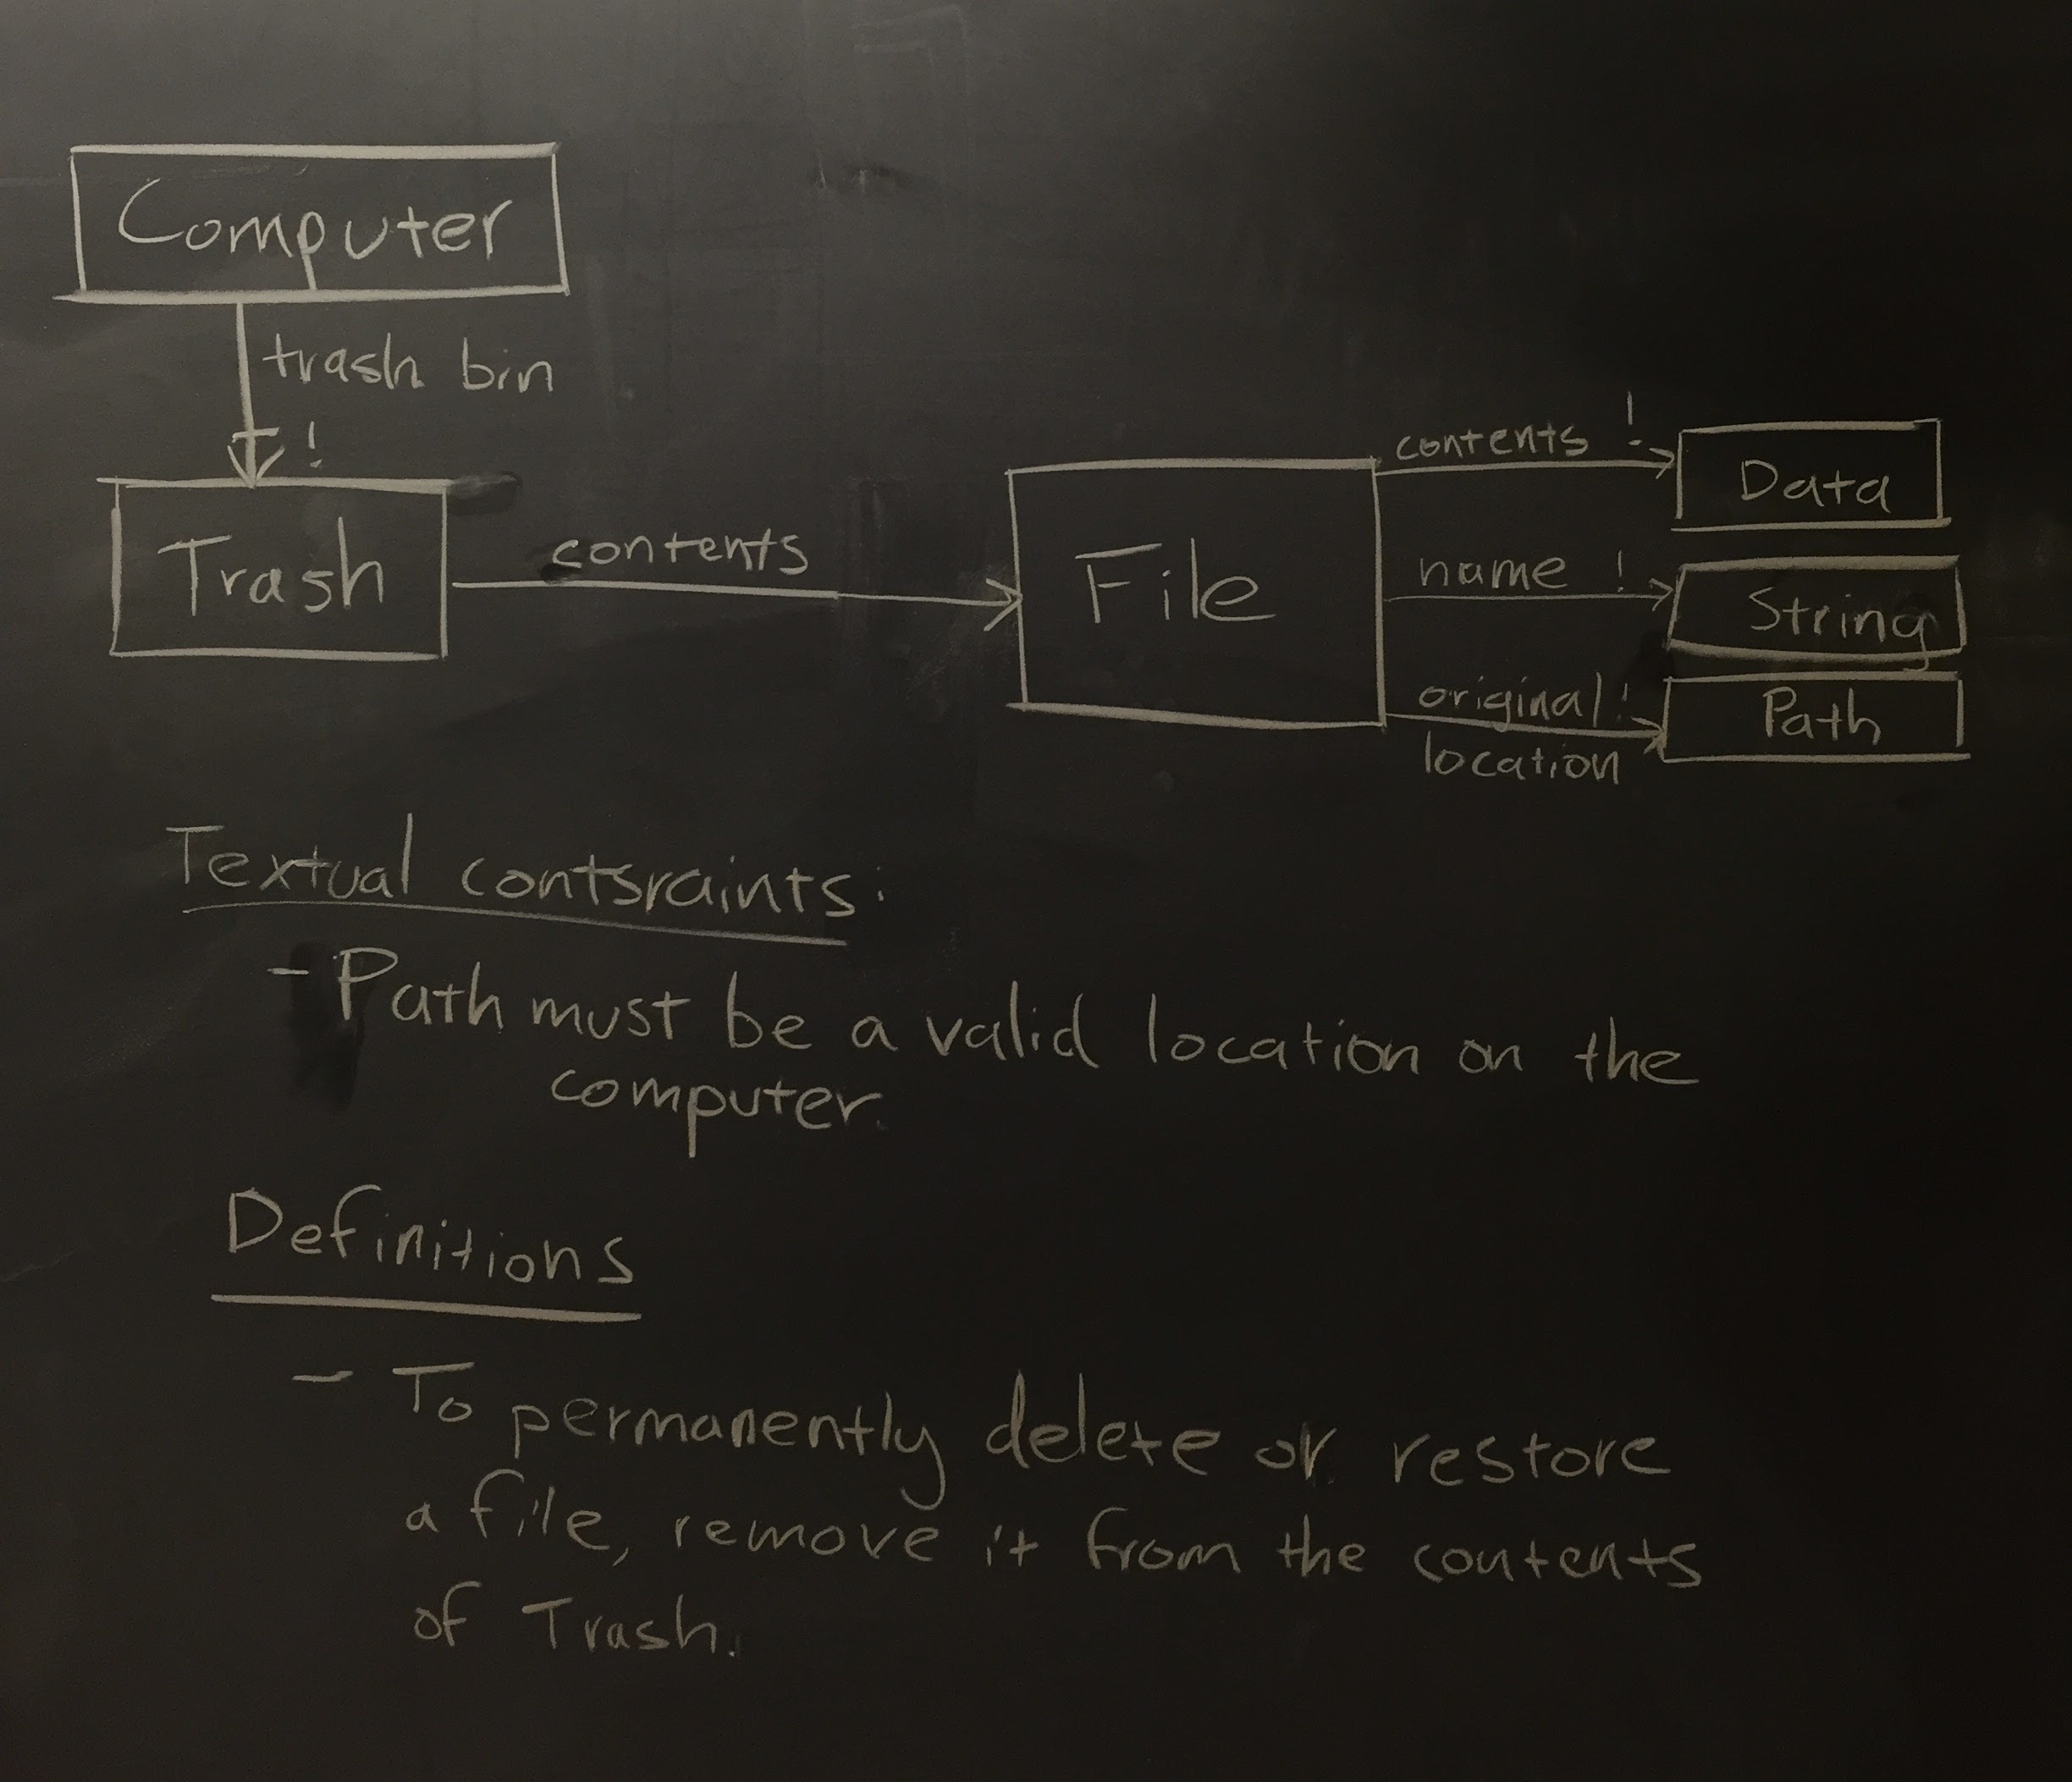 Computer
trash bin
!
Trash
contents
File
contents !
Data
name !
String
original !
location
Path
Textual contsraints:
- Path must be a valid location on the
computer.
Definitions
- To permanently delete or restore
a file, remove it from the contents
of Trash.